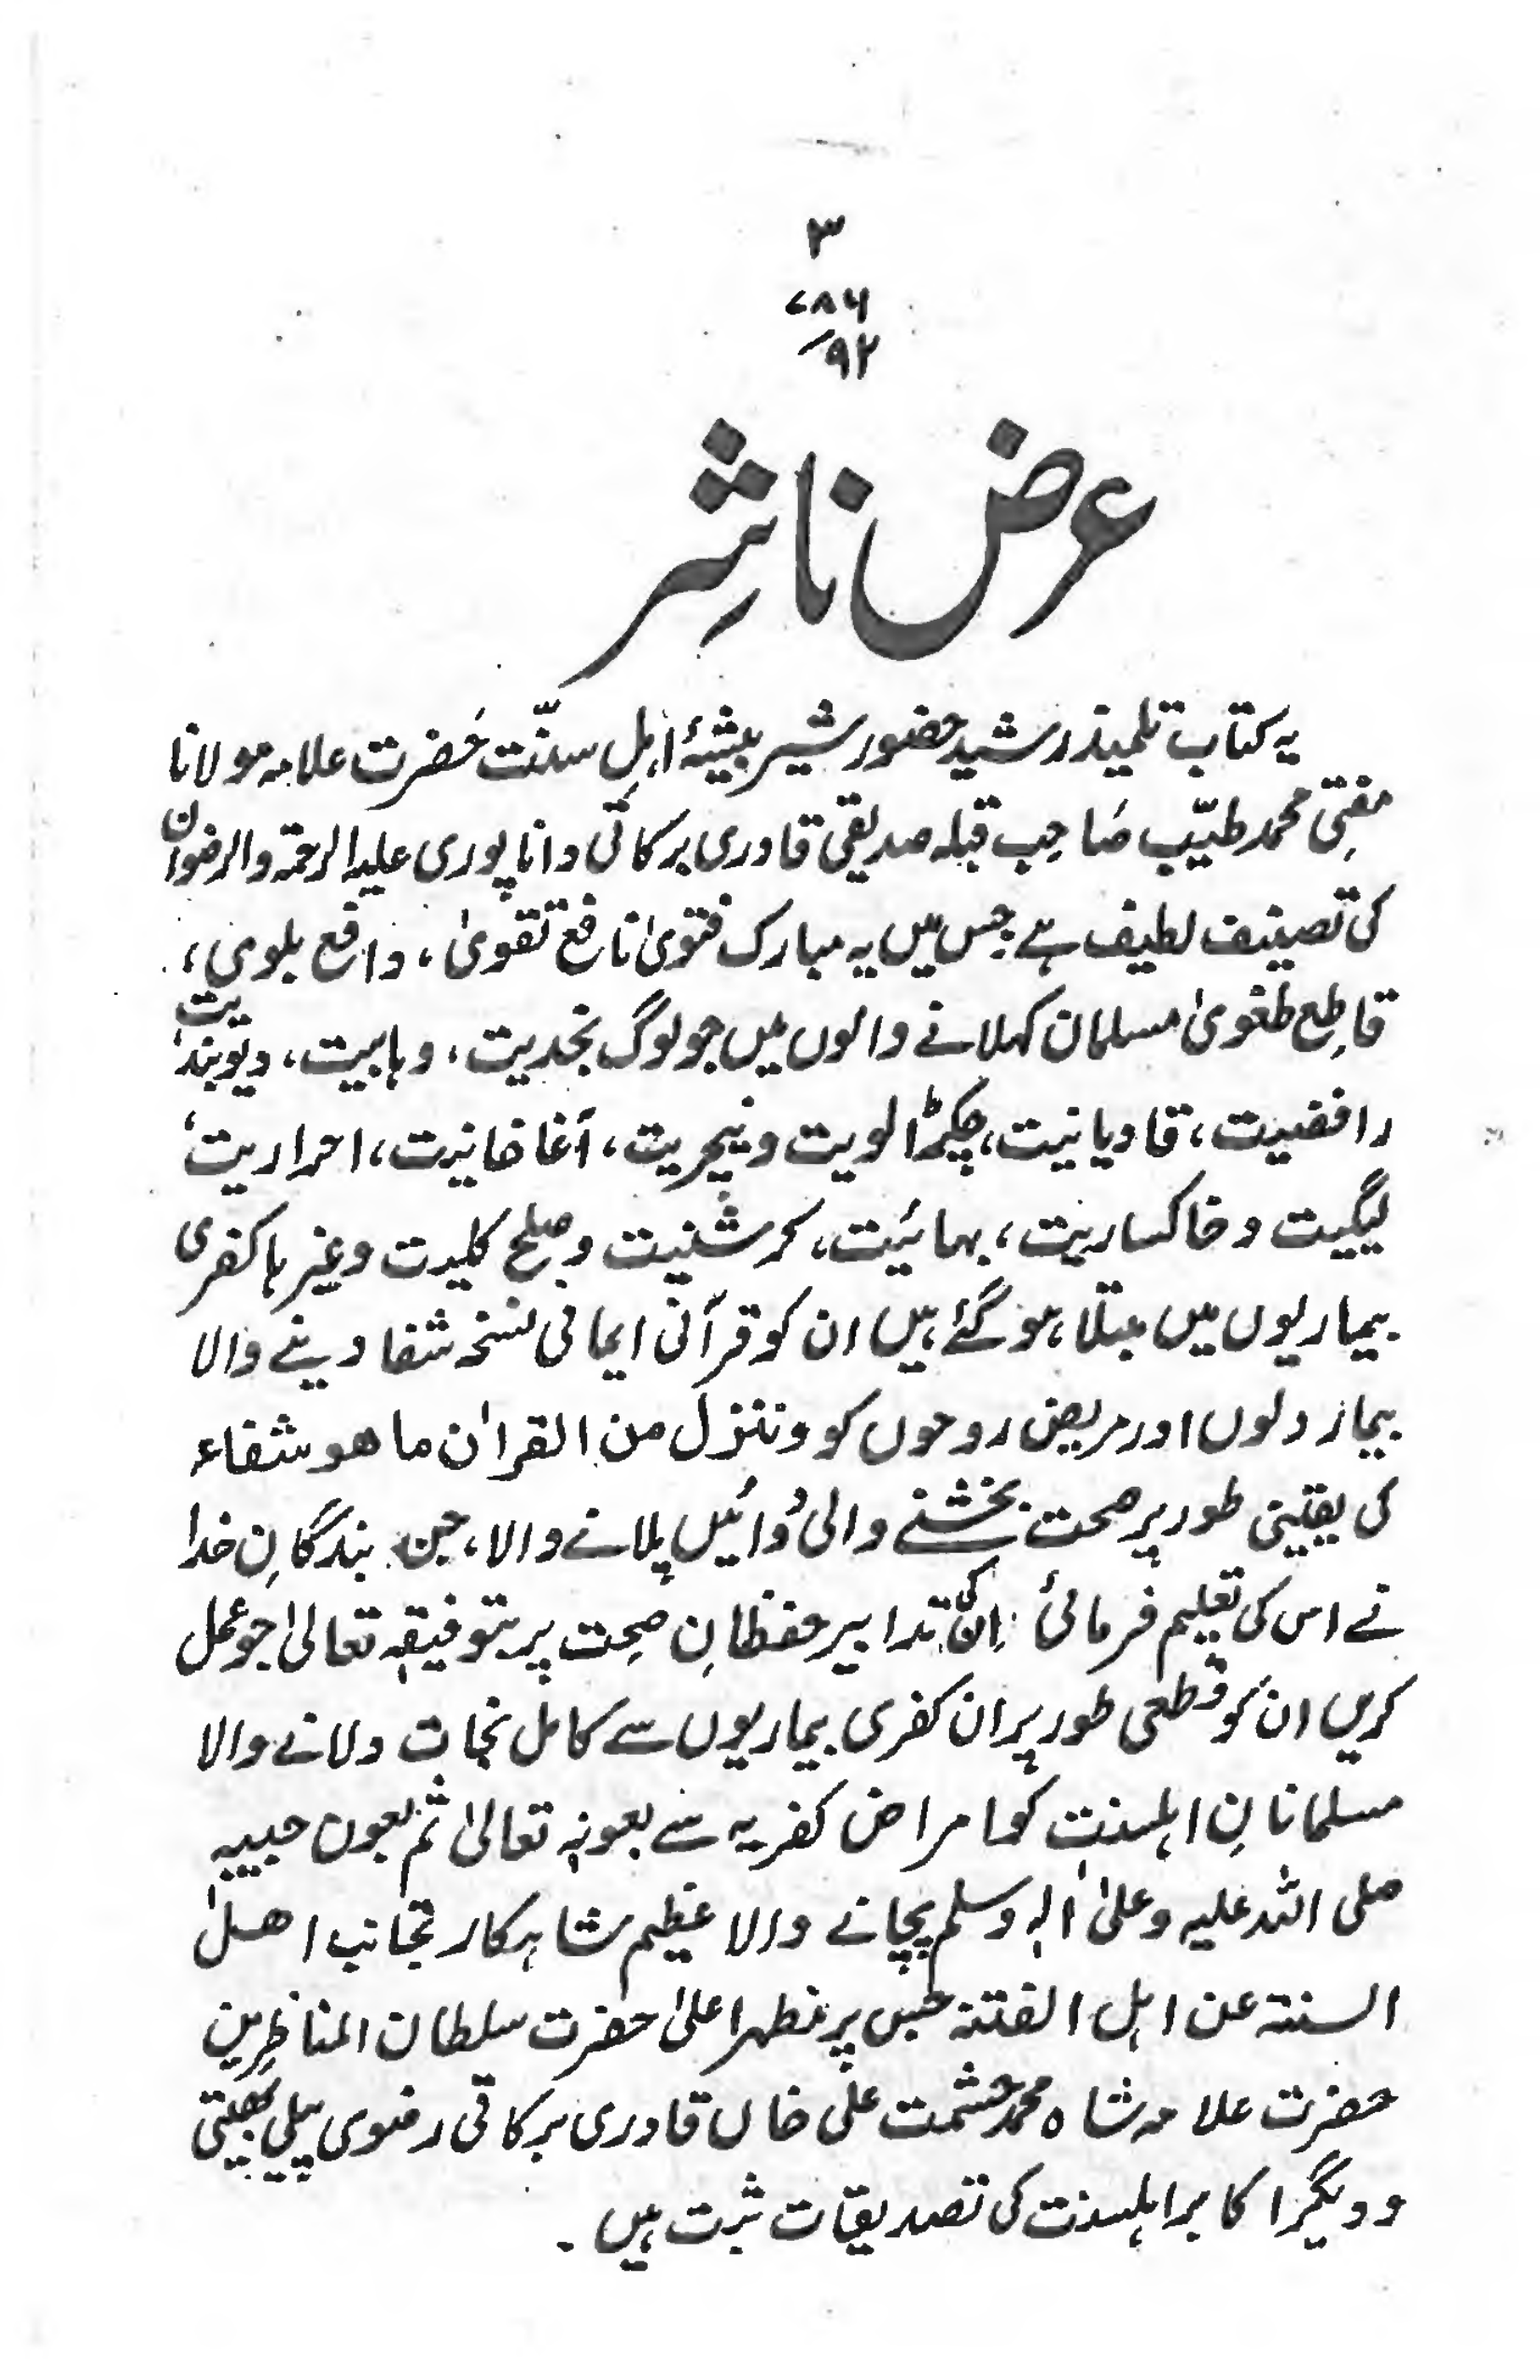 ۳
۷۸۶
۹۲
عرض ناشِر
یہ کتاب تلمیذ رشید حضور شیر بیشۂ اہلِ سنّت حَضرت علامہ مولانا
مفتِی محمد طیّب صَاحِب قبلہ صدیقی قادری برکاتی داناپوری علیہ الرحمۃ والرضوان
کی تصنیف لطیف ہے جس میں یہ مبارک فتویٰ نافع تقویٰ، دافع بلوی،
قاطِع طغویٰ مسلمان کہلانے والوں میں جو لوگ نجدیت، وہابیت، دیوبندیت
رافضیت، قادیانیت، چکڑالویت و نیچریت، آغاخانیت، احراریت،
لیگیت و خاکساریت، بہائیت، کرشنیت و صلح کلیت وغیرہا کفری
بیماریوں میں مبتلا ہوگئے ہیں ان کو قرآنی ایمانی نسخہ شفا دینے والا
بیمار دلوں اور مریض روحوں کو وننزل من القراٰن ما ھو شفاء
کی یقینی طور پر صحت بخشنے والی دُوائیں پلانے والا، جن بندگانِ خدا
نے اس کی تعلیم فرمائی اِن کی تدابیر حفظانِ صِحت پر بتوفیقہٖ تعالیٰ جو عمل
کریں ان کو قطعی طور پر ان کفری بیماریوں سے کامل نجات دلانے والا
مسلمانانِ اہلسنت کو امراض کفریہ سے بعونہٖ تعالیٰ ثم بعون حبیبہ
صلی اللہ علیہ وعلیٰ اٰلہٖ وسلم بچانے والا عظیم شاہکار تجانب اھل
السنۃ عن اہل الفتنۃ جس پر مظہر اعلیٰ حضرت سلطان المناظِرین
حضرت علامہ شاہ محمد حشمت علی خاں قادری برکاتی رضوی پیلی بھیتی
و دیگر اکابر اہلسنت کی تصدیقات ثبت ہیں۔